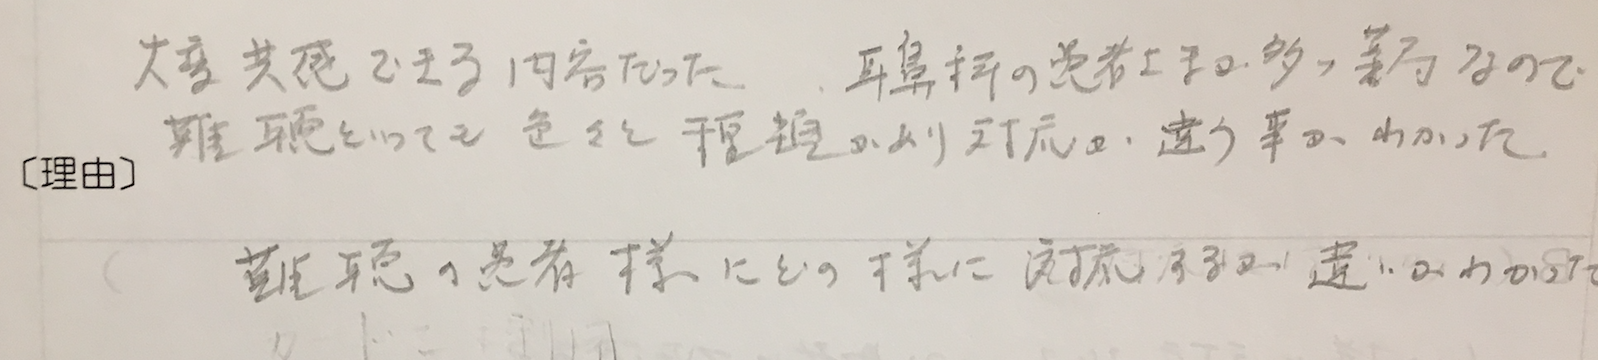 大変共感できる内容だった 耳鼻科の患者さまが多い薬局なので
難聴といっても色々と種類があり対応が違う事がわかった
〔理由〕
難聴の患者様にどの様に対応するか違いがわかった